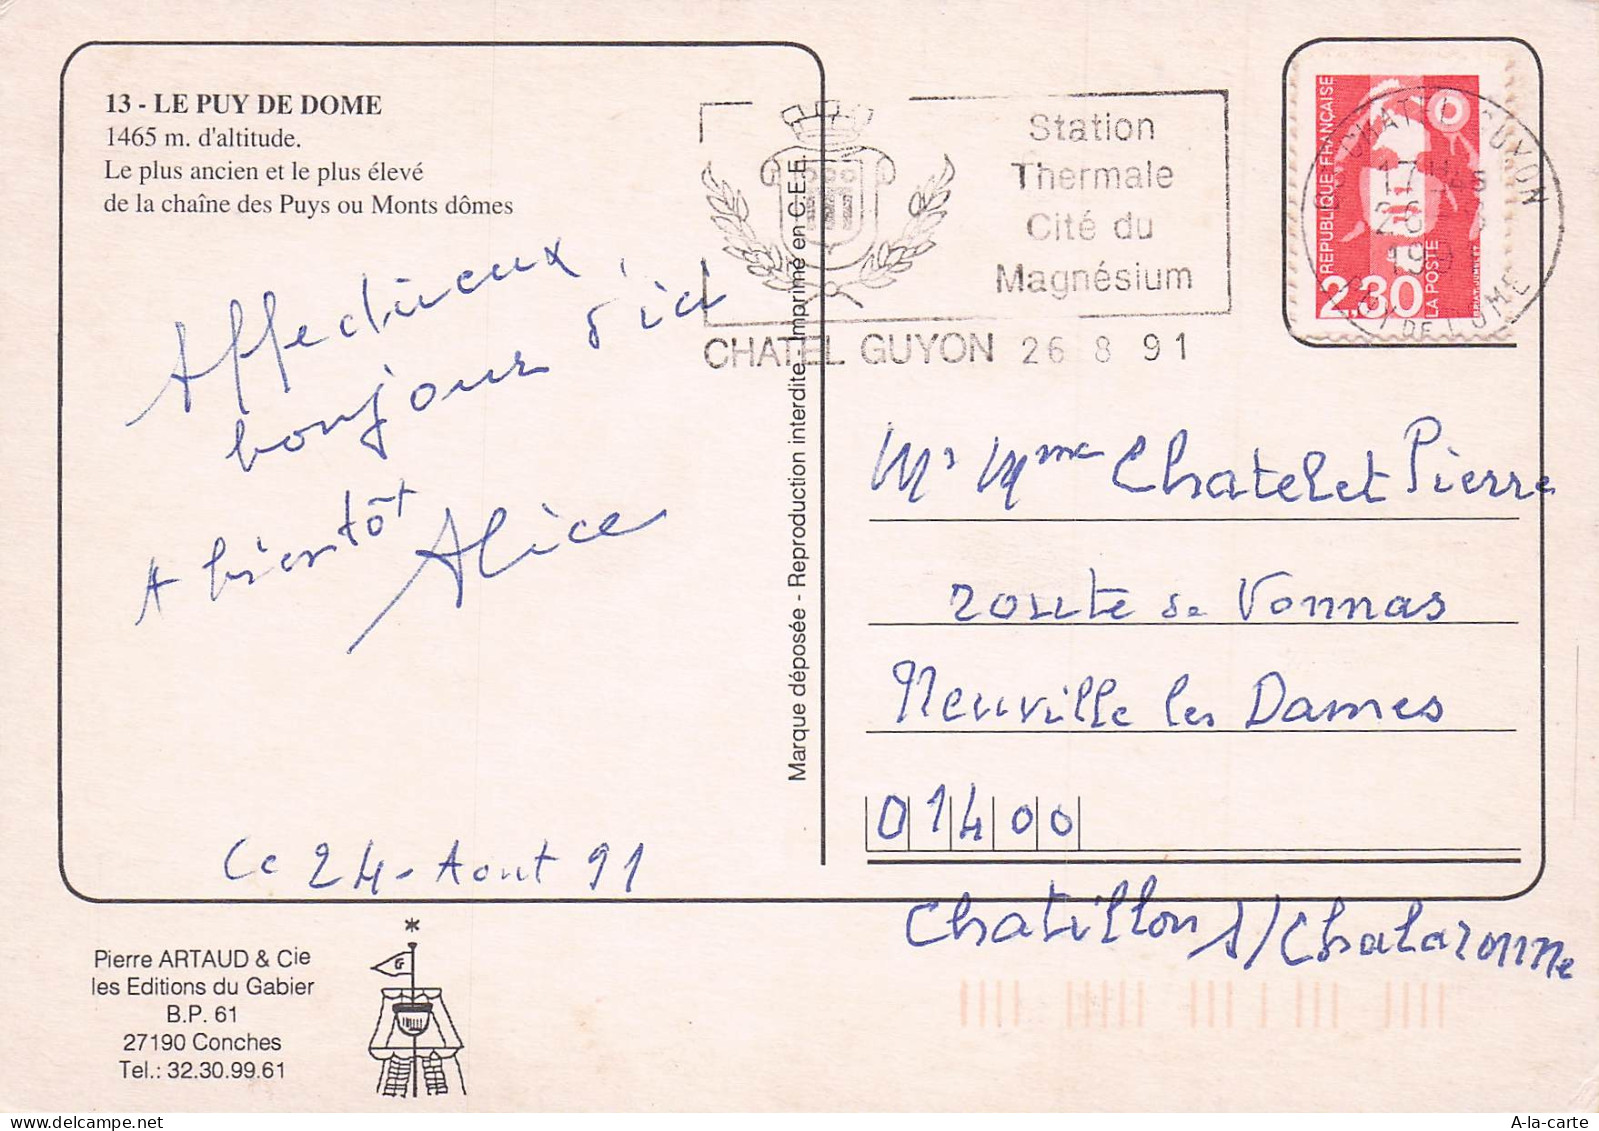 13 - LE PUY DE DOME
1465 m. d'altitude.
Le plus ancien et le plus élevé
de la chaîne des Puys ou Monts dômes
Affectueux
bonjour d'ici
A bientôt
Alice
Ce 24 - Aout 91
Pierre ARTAUD & Cie
les Editions du Gabier
B.P. 61
27190 Conches
Tel.: 32.30.99.61
Marque déposée - Reproduction interdite - Imprimé en C.E.E.
Station
Thermale
Cité du
Magnésium
CHATEL GUYON 26 8 91
REPUBLIQUE FRANÇAISE
2,30
LA POSTE
CHATEL GUYON
17H
26
199
PUY DE DOME
Mr Mme Chatelet Pierre
route de Vonnas
Neuville les Dames
01400
Chatillon s/Chalaronne
A-la-carte